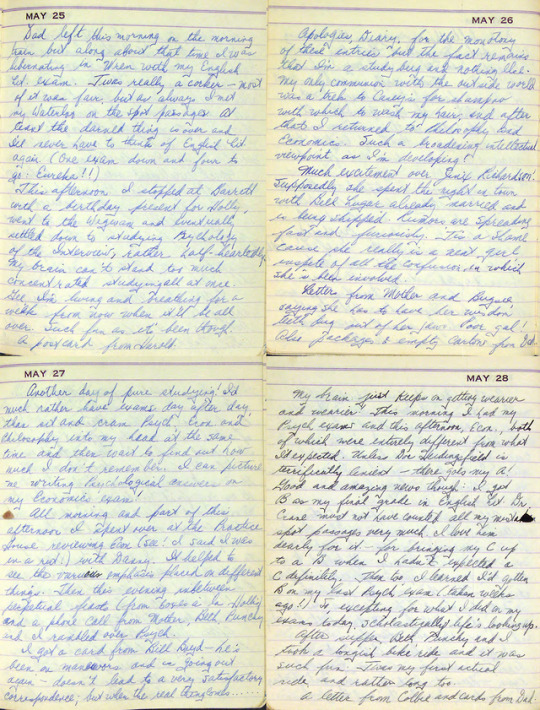 MAY 25
Dad left this morning on the morning
train but along about that time I was
hibernating in Wren with my English
Lit. exam. Twas really a corker – most
of it was fair, but as always I met
my Waterloo on the spot passages. At
least the darned thing is over and
I'll never have to think of English Lit.
again (One exam down and four to
go! Eureka!!)
This afternoon I stopped at Barrett
with a birthday present for Holly,
went to the Wigwam and eventually
settled down to studying Psychology
of the Interview, rather half-heartedly.
My brain can't stand too much
concentrated studying all at once.
Gee I'm living and breathing for a
week from now when it'll be all
over. Such fun as it's been though.
A postcard from Harold.
MAY 26
Apologies, Diary, for the monotony
of these entries but the fact remains
that I'm a study bug and nothing else.
My only communion with the outside world
was a trek to Casey's for shampoo
with which to wash my hair, and after
that I returned to Philosophy and
Economics. Such a broadening intellectual
viewpoint as I'm developing!
Much excitement over Jinx Richardson.
Supposedly she spent the night in town
with Bill Lugar already married and
is being shipped. Rumors are spreading
fast and furiously. Tis a shame
cause she really is a neat girl
inspite of all the confusion in which
she's been involved.
Letter from Mother and
saying she has to have her wisdom
teeth dug out of her jaw. Poor gal!
Also packages & empty cartons from Dad.
MAY 27
Another day of pure studying! I'd
much rather have exams day after day
than sit and cram Psych, Econ and
Philosophy into my head at the same
time and then wait to find out how
much I don't remember. I can picture
me writing Psychological answers on
my Economics exam!
All morning and part of this
afternoon I spent over at the Practice
House reviewing Econ (see! I said I was
in a rut!) with Danny. It helped to
see the various emphasis placed on different
things. Then this evening inbetween
perpetual feasts (from boxes à la Holly)
and a phone call from Mother, Beth, Punchy
and I rambled over Psych.
I got a card from Bill Boyd – he's
been on maneuvers and is going out
again – doesn't lead to a very satisfactory
correspondence, but when the real thing ends......
MAY 28
My brain just keeps on getting wearier
and wearier. This morning I had my
Psych exam and this afternoon, Econ., both
of which were entirely different from what
I expected. Unless Doc Seidenfield is
terrifically lenient – there goes my A!
Good and amazing news though! I got
B as my final grade in English Lit. Dr.
Crase must not have counted all my mistaken
spot passages very much. I love him
dearly for it – for bringing my C up
to a B when I hadn't expected a
C definitely. Then too I learned I'd gotten
B on my last Psych exam (taken weeks
ago!) So, excepting for what I did on my
exams today, scholastically life's looking up.
After supper Beth, Punchy and I
took a longish bike ride and it was
such fun. Twas my first actual
ride and rather long too.
A letter from Colbie and cards from Dad.